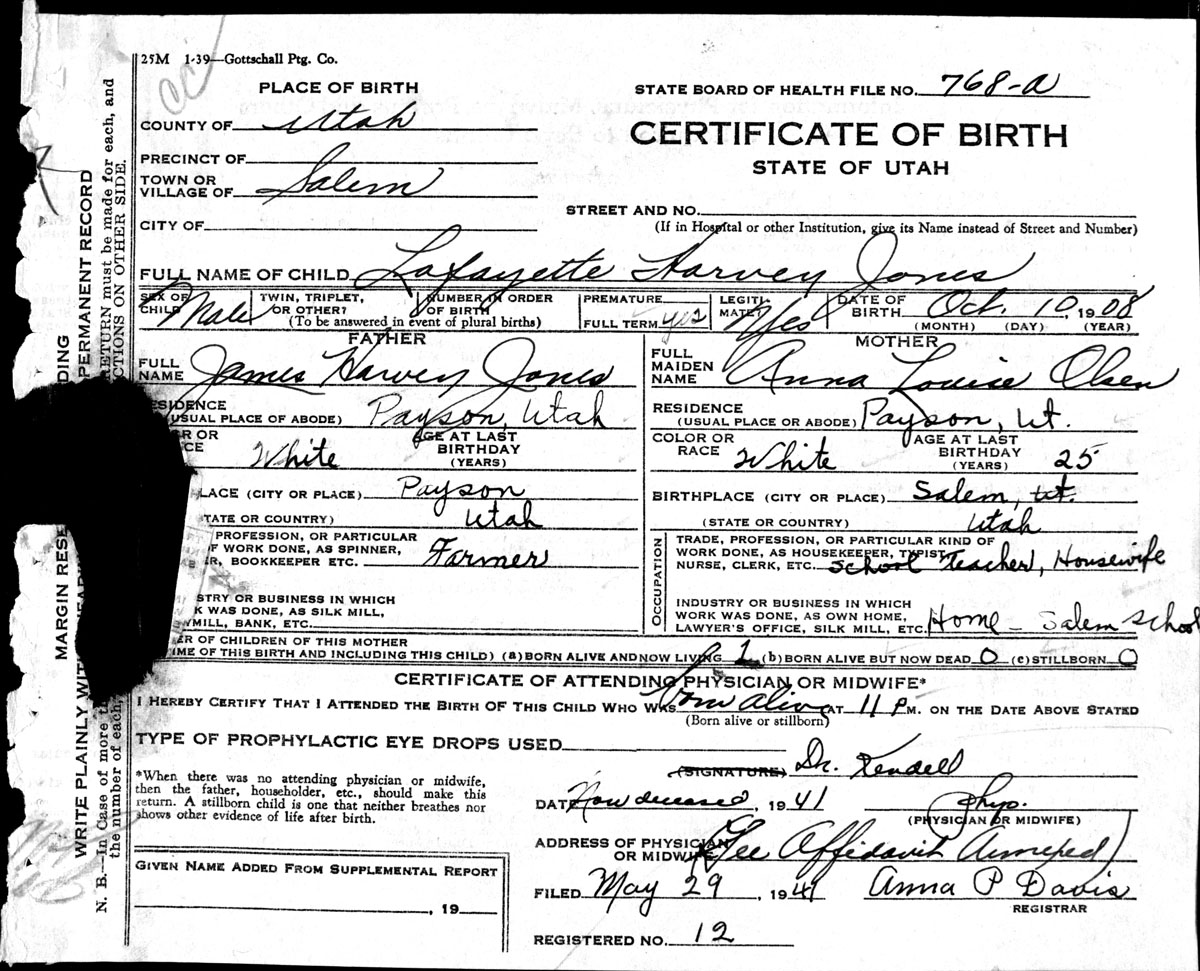 25M 1-39—Gottschall Ptg. Co.
PLACE OF BIRTH
STATE BOARD OF HEALTH FILE NO. 768-a
COUNTY OF Utah
CERTIFICATE OF BIRTH
STATE OF UTAH
PRECINCT OF
TOWN OR
VILLAGE OF Salem
STREET AND NO.
(If in Hospital or other Institution, give its Name instead of Street and Number)
CITY OF
FULL NAME OF CHILD Lafayette Harvey Jones
SEX OF
CHILD Male
TWIN, TRIPLET,
OR OTHER?
NUMBER IN ORDER
OF BIRTH
(To be answered in event of plural births)
PREMATURE
FULL TERM yes
LEGITI-
MATE? Yes
DATE OF
BIRTH Oct. 10, 1908
(MONTH) (DAY) (YEAR)
FATHER
FULL
NAME James Harvey Jones
RESIDENCE
(USUAL PLACE OF ABODE) Payson, Utah
OR OR
CE White
AGE AT LAST
BIRTHDAY
(YEARS)
LACE (CITY OR PLACE) Payson
TATE OR COUNTRY) Utah
PROFESSION, OR PARTICULAR
F WORK DONE, AS SPINNER,
R, BOOKKEEPER ETC. Farmer
STRY OR BUSINESS IN WHICH
K WAS DONE, AS SILK MILL,
WMILL, BANK, ETC.
MOTHER
FULL
MAIDEN
NAME Anna Louise Olsen
RESIDENCE
(USUAL PLACE OR ABODE) Payson, Ut.
COLOR OR
RACE White
AGE AT LAST
BIRTHDAY
(YEARS) 25
BIRTHPLACE (CITY OR PLACE) Salem, Ut.
(STATE OR COUNTRY) Utah
OCCUPATION
TRADE, PROFESSION, OR PARTICULAR KIND OF
WORK DONE, AS HOUSEKEEPER, TYPIST
NURSE, CLERK, ETC. School Teacher, Housewife
INDUSTRY OR BUSINESS IN WHICH
WORK WAS DONE, AS OWN HOME,
LAWYER'S OFFICE, SILK MILL, ETC. Home - Salem School
ER OF CHILDREN OF THIS MOTHER
TIME OF THIS BIRTH AND INCLUDING THIS CHILD) (a) BORN ALIVE AND NOW LIVING 1 (b) BORN ALIVE BUT NOW DEAD 0 (c) STILLBORN 0
CERTIFICATE OF ATTENDING PHYSICIAN OR MIDWIFE*
I HEREBY CERTIFY THAT I ATTENDED THE BIRTH OF THIS CHILD WHO WAS Born Alive AT 11 P M. ON THE DATE ABOVE STATED
(Born alive or stillborn)
TYPE OF PROPHYLACTIC EYE DROPS USED
*When there was no attending physician or midwife,
then the father, householder, etc., should make this
return. A stillborn child is one that neither breathes nor
shows other evidence of life after birth.
(SIGNATURE) Dr. Kendell
DATE Now deceased, 1941 Phys.
(PHYSICIAN OR MIDWIFE)
ADDRESS OF PHYSICIAN
OR MIDWIFE (See Affidavit Annexed)
FILED May 29 1941 Anna P Davis
REGISTRAR
REGISTERED NO. 12
GIVEN NAME ADDED FROM SUPPLEMENTAL REPORT
, 19
MARGIN RESE DING
WRITE PLAINLY WIT PERMANENT RECORD
N. B.—In Case of more th RETURN must be made for each, and
the number of each, CTIONS ON OTHER SIDE.